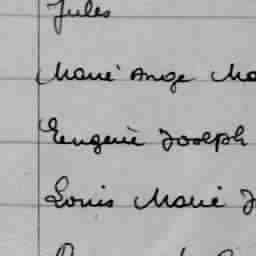 Jules
Marie Ange Ma
Eugénie Joseph
Louis Marie J